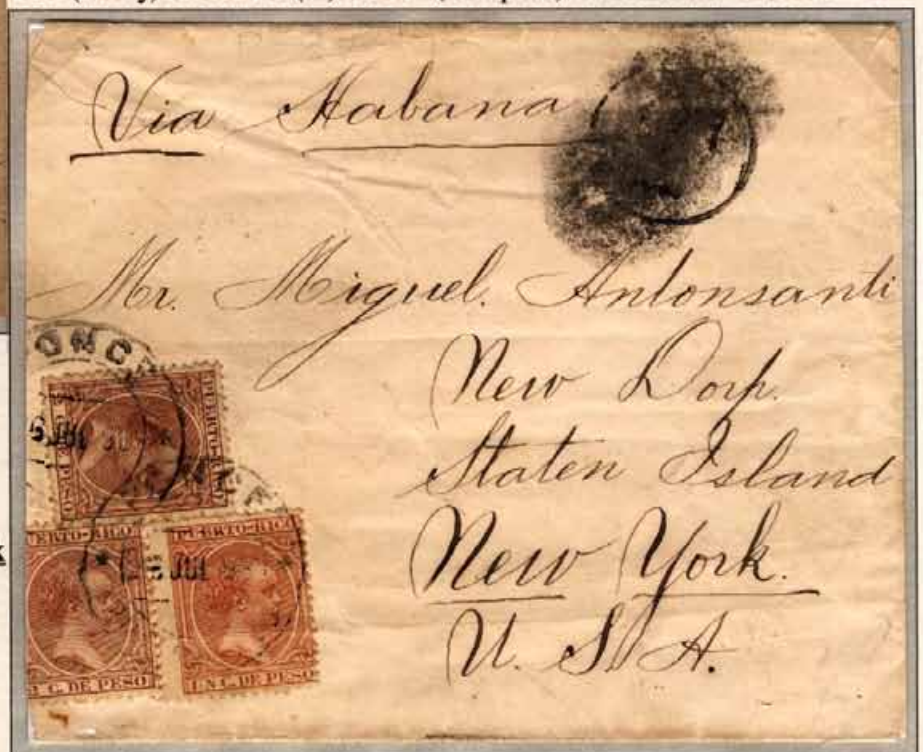 Via Habana
Mr. Miguel. Antonsanti
New Dorp.
Staten Island
New York.
U. S. A.
PUERTO-RICO
C. DE PESO
JUL
ERTO-RICO
C. DE PESO
JUL
PUERTO-RICO
UN C. DE PESO